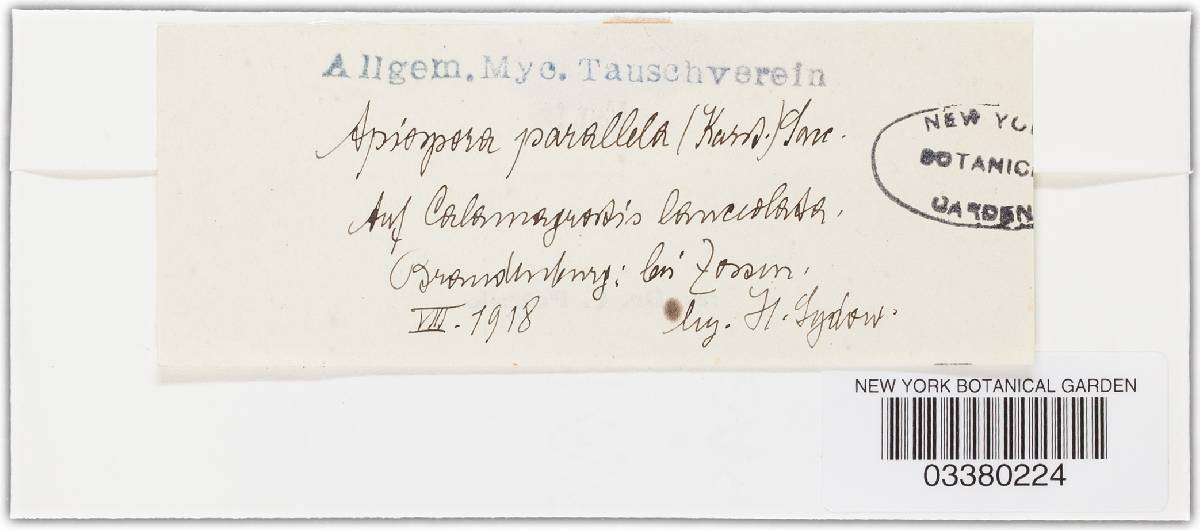 Allgem. Myc. Tauschverein
Apiospora parallela (Karst.) Sacc.
Auf Calamagrostis lanceolata.
Brandenburg: bei Zossen.
VIII. 1918 leg. H. Sydow.
NEW YO
BOTANIC
GARDEN
NEW YORK BOTANICAL GARDEN
03380224